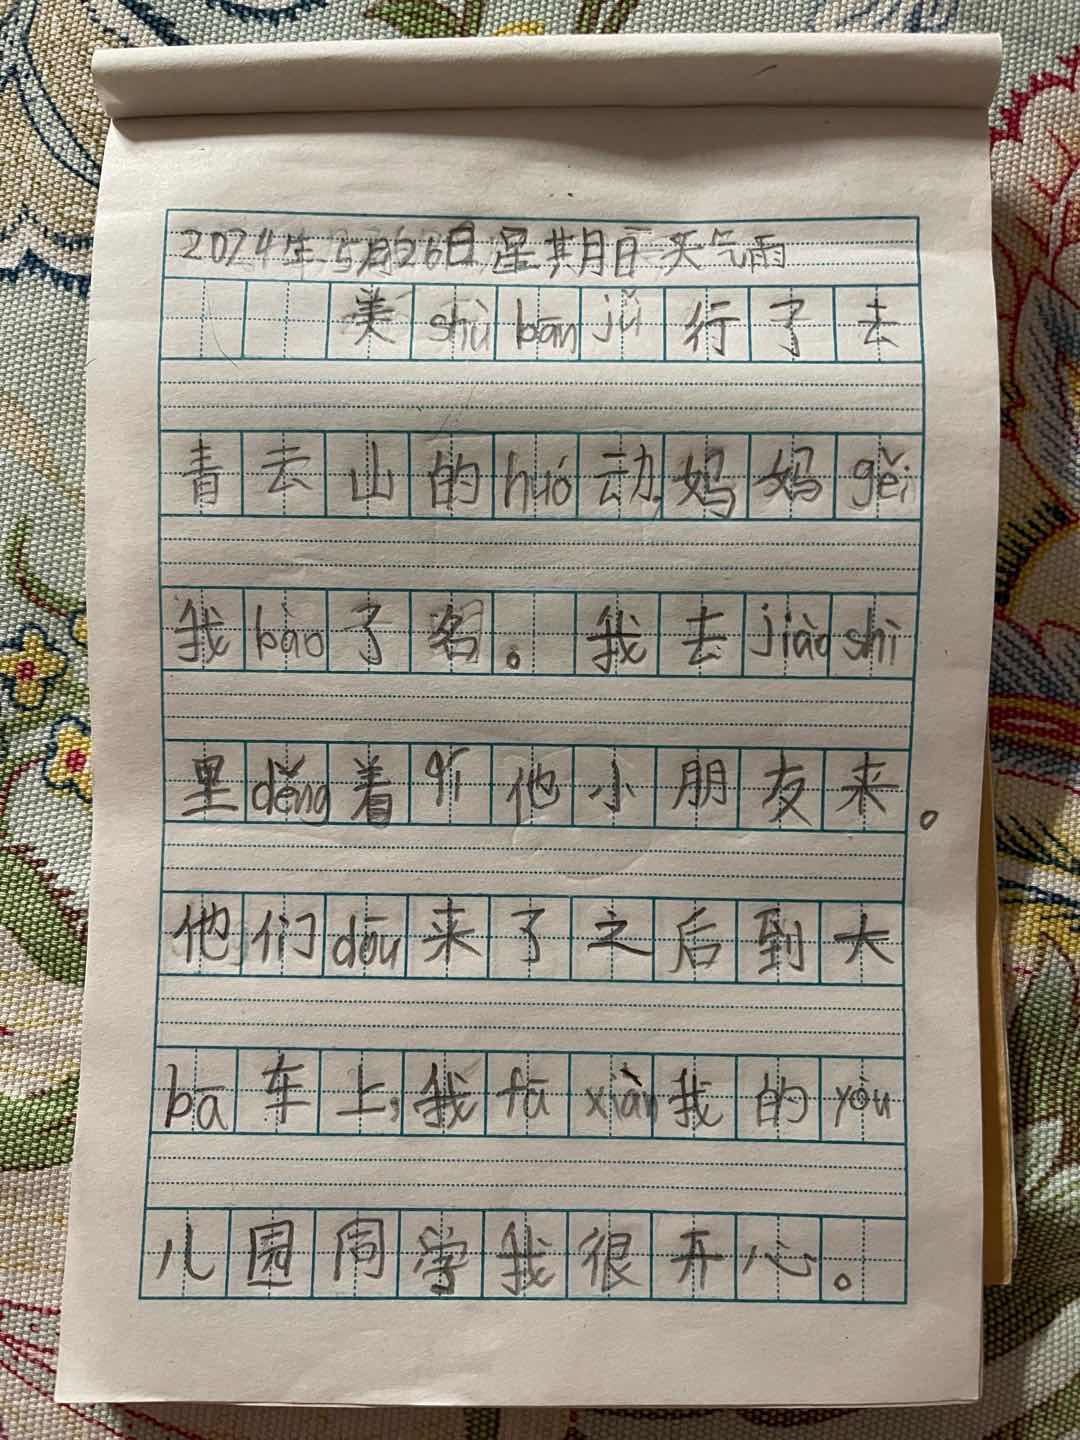 2024年5月26日星期日 天气雨
美shù bān jǔ行了去
青去山的huó动,妈妈gěi
我bào了名。我去jiào shì
里děng着qí他小朋友来。
他们dōu来了之后到大
bā车上,我fā xiàn我的yòu
儿园同学我很开心。